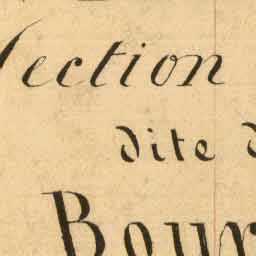 Section
dite d
Bour